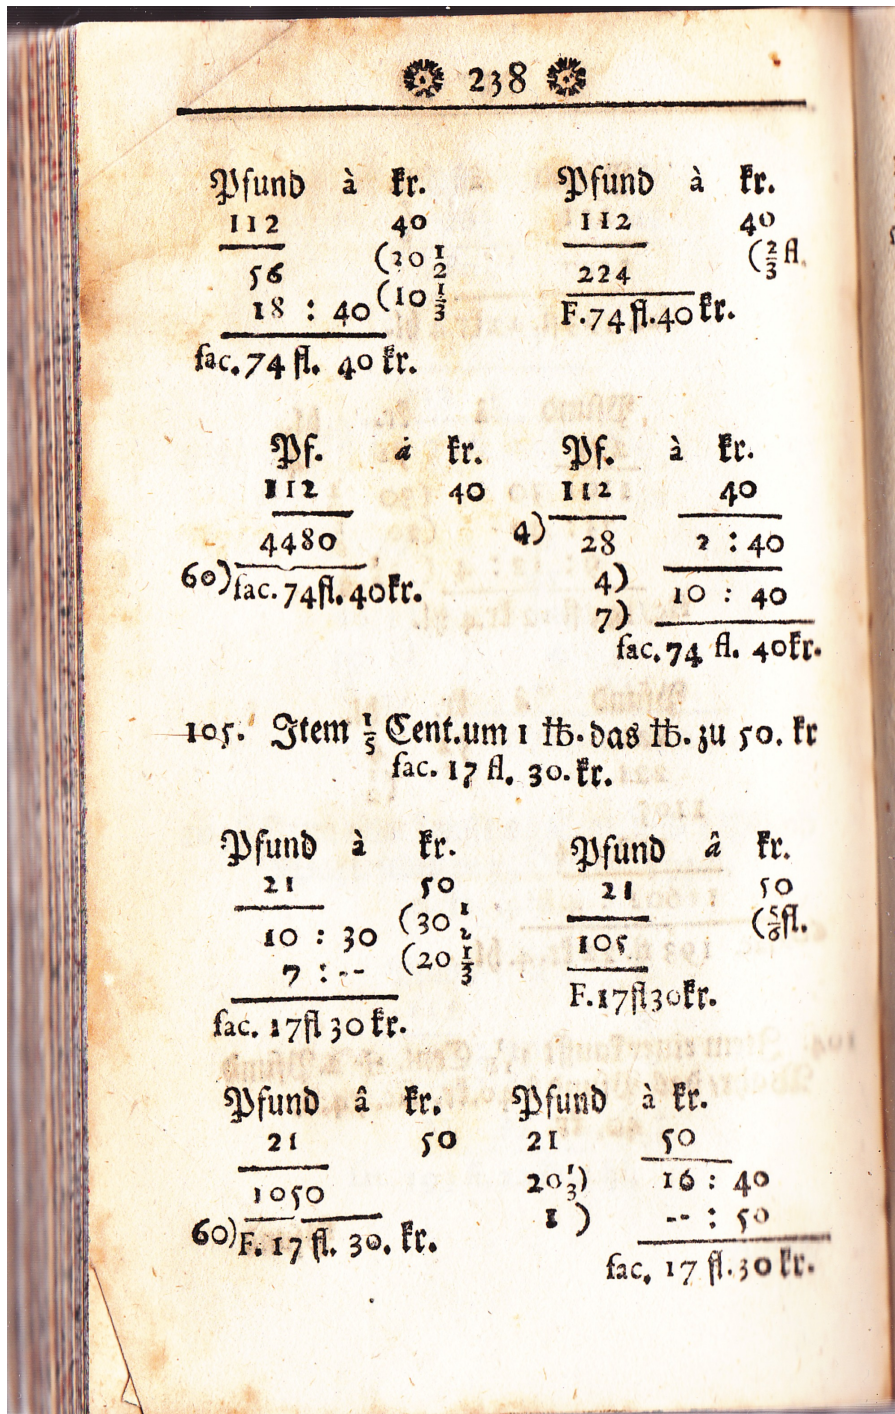 238
Pfund à kr.
112 40
56 (20 1/2
18 : 40 (10 1/3
fac. 74 fl. 40 kr.
Pfund à kr.
112 40
(2/3 fl.
224
F. 74 fl. 40 kr.
Pf. à kr.
112 40
4480
60) fac. 74 fl. 40 kr.
Pf. à kr.
112 40
4) 28 2 : 40
4)
7) 10 : 40
fac. 74 fl. 40 kr.
105. Item 1/5 Cent. um 1 ℔. das ℔. zu 50. kr
fac. 17 fl. 30. kr.
Pfund à kr.
21 50
10 : 30 (30 1/2
7 : -- (20 1/3
fac. 17 fl 30 kr.
Pfund â kr.
21 50
(5/6 fl.
105
F. 17 fl 30 kr.
Pfund â kr.
21 50
1050
60) F. 17 fl. 30. kr.
Pfund à kr.
21 50
20 1/3) 16 : 40
1 ) -- : 50
fac. 17 fl. 30 kr.